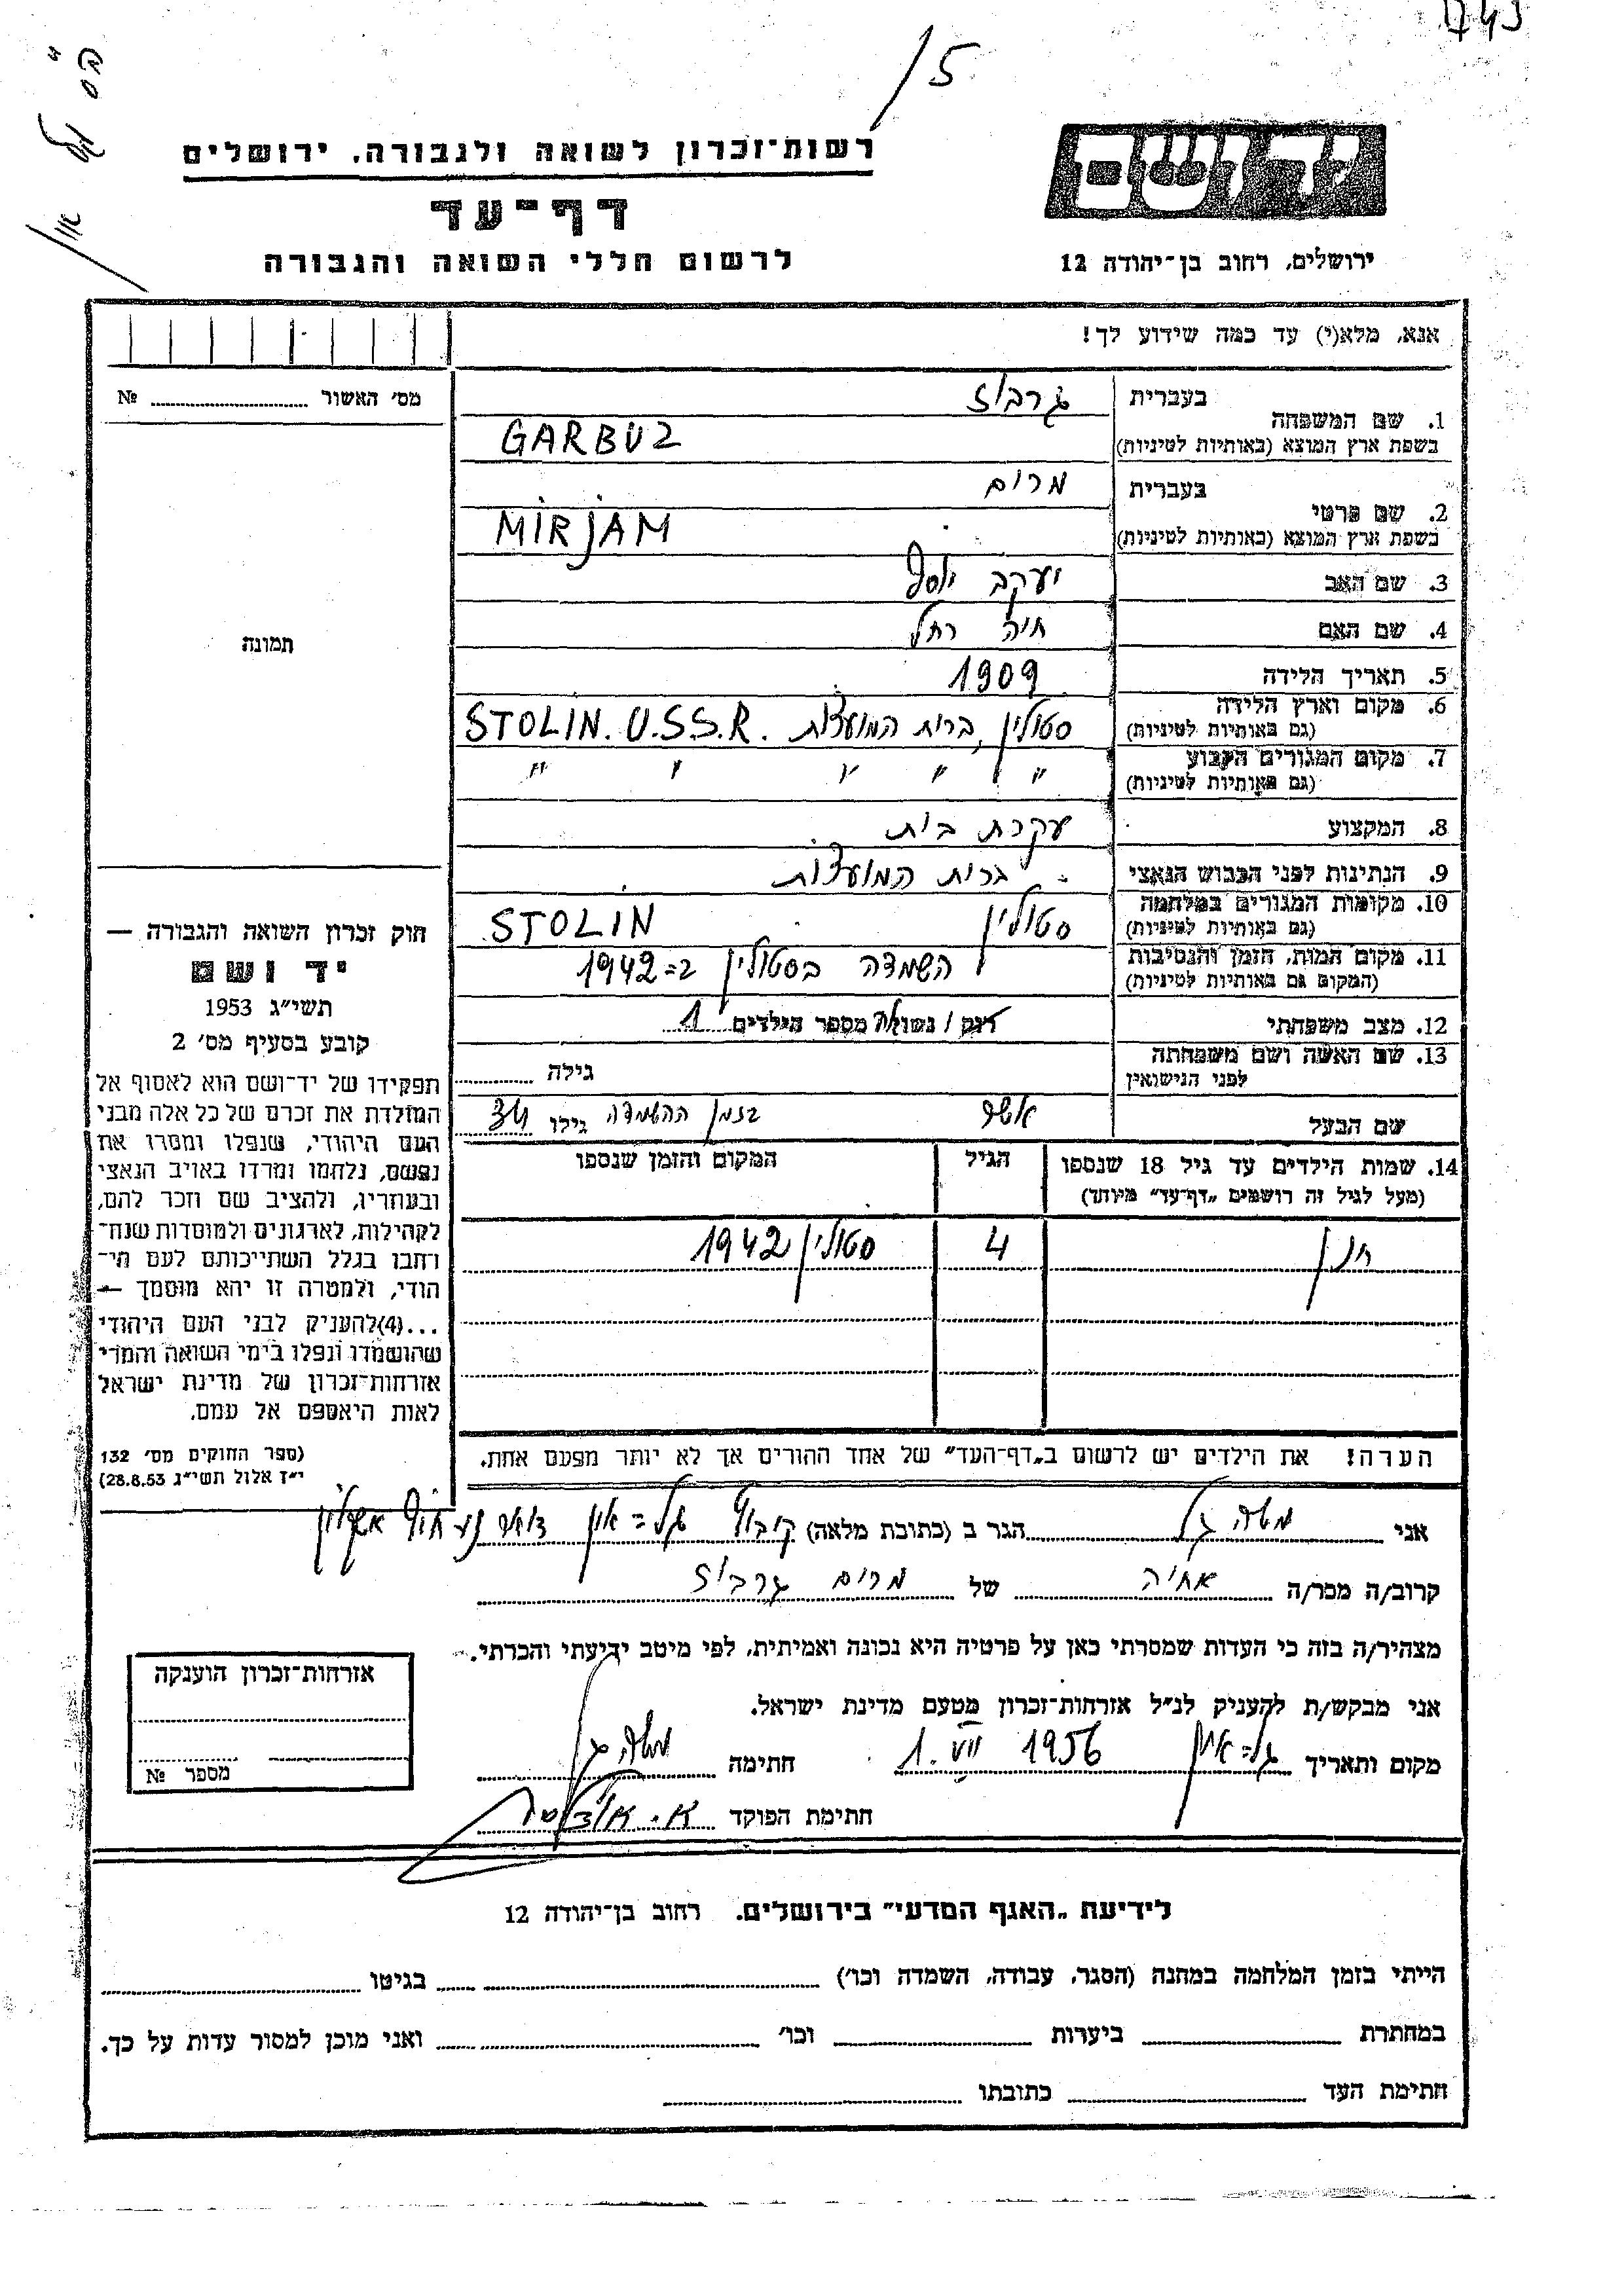 15
רשות־זכרון לשואה ולגבורה, ירושלים
דף־עד
לרשום חללי השואה והגבורה
ידושם
ירושלים, רחוב בן־יהודה 12
אנא, מלא(י) עד כמה שידוע לך!
מס׳ האשור № 
1. שם המשפחה
בעברית
גרבוז
בשפת ארץ המוצא (באותיות לטיניות)
GARBUZ
2. שם פרטי
בעברית
מרים
בשפת ארץ המוצא (באותיות לטיניות)
MIRJAM
3. שם האב יעקב יוסף
4. שם האם חיה רחל
5. תאריך הלידה 1909
6. מקום וארץ הלידה סטולין, ברית המועצות STOLIN. U.S.S.R.
(גם באותיות לטיניות)
7. מקום המגורים הקבוע " " " " "
(גם באותיות לטיניות)
8. המקצוע עקרת בית
9. הנתינות לפני הכבוש הנאצי ברית המועצות
10. מקומות המגורים במלחמה סטולין STOLIN
(גם באותיות לטיניות)
11. מקום המות, הזמן והנסיבות השמדה בסטולין ב=1942
(המקום גם באותיות לטיניות)
12. מצב משפחתי רוק / נשואה מספר הילדים 1
13. שם האשה ושם משפחתה
לפני הנישואין
גילה
שם הבעל אשר בזמן ההשמדה גילו 34
14. שמות הילדים עד גיל 18 שנספו
(מעל לגיל זה רושמים „דף־עד" מיוחד)
הגיל
המקום והזמן שנספו
חנן 4 סטולין 1942
הערה! את הילדים יש לרשום ב„דף־העד" של אחד ההורים אך לא יותר מפעם אחת.
תמונה
חוק זכרון השואה והגבורה —
יד ושם
תשי״ג 1953
קובע בסעיף מס׳ 2
תפקידו של יד־ושם הוא לאסוף אל
המולדת את זכרם של כל אלה מבני
העם היהודי, שנפלו ומסרו את
נפשם, נלחמו ומרדו באויב הנאצי
ובעוזריו, ולהציב שם וזכר להם,
לקהילות, לארגונים ולמוסדות שנח־
רחבו בגלל השתייכותם לעם הי־
הודי, ולמטרה זו יהא מוסמך —
...(4)להעניק לבני העם היהודי
שהושמדו ונפלו בימי השואה והמרי
אזרחות־זכרון של מדינת ישראל
לאות היאספם אל עמם.
(ספר החוקים מס׳ 132
י״ז אלול תשי״ג 28.8.53)
אני משה גל הגר ב (כתובת מלאה) קיבוץ גל=און דואר נע חוף אשקלון
קרוב/ה מכר/ה אחיה של מרים גרבוז
מצהיר/ה בזה כי העדות שמסרתי כאן על פרטיה היא נכונה ואמיתית, לפי מיטב ידיעתי והכרתי.
אני מבקש/ת להעניק לנ״ל אזרחות־זכרון מטעם מדינת ישראל.
מקום ותאריך גל=און 1. VII 1956 חתימה משה גל
חתימת הפוקד א.
אזרחות־זכרון הוענקה
מספר №
לידיעת „האגף המדעי" בירושלים. רחוב בן־יהודה 12
הייתי בזמן המלחמה במחנה (הסגר, עבודה, השמדה וכו׳) בגיטו
במחתרת ביערות וכו׳ ואני מוכן למסור עדות על כך.
חתימת העד כתובתו